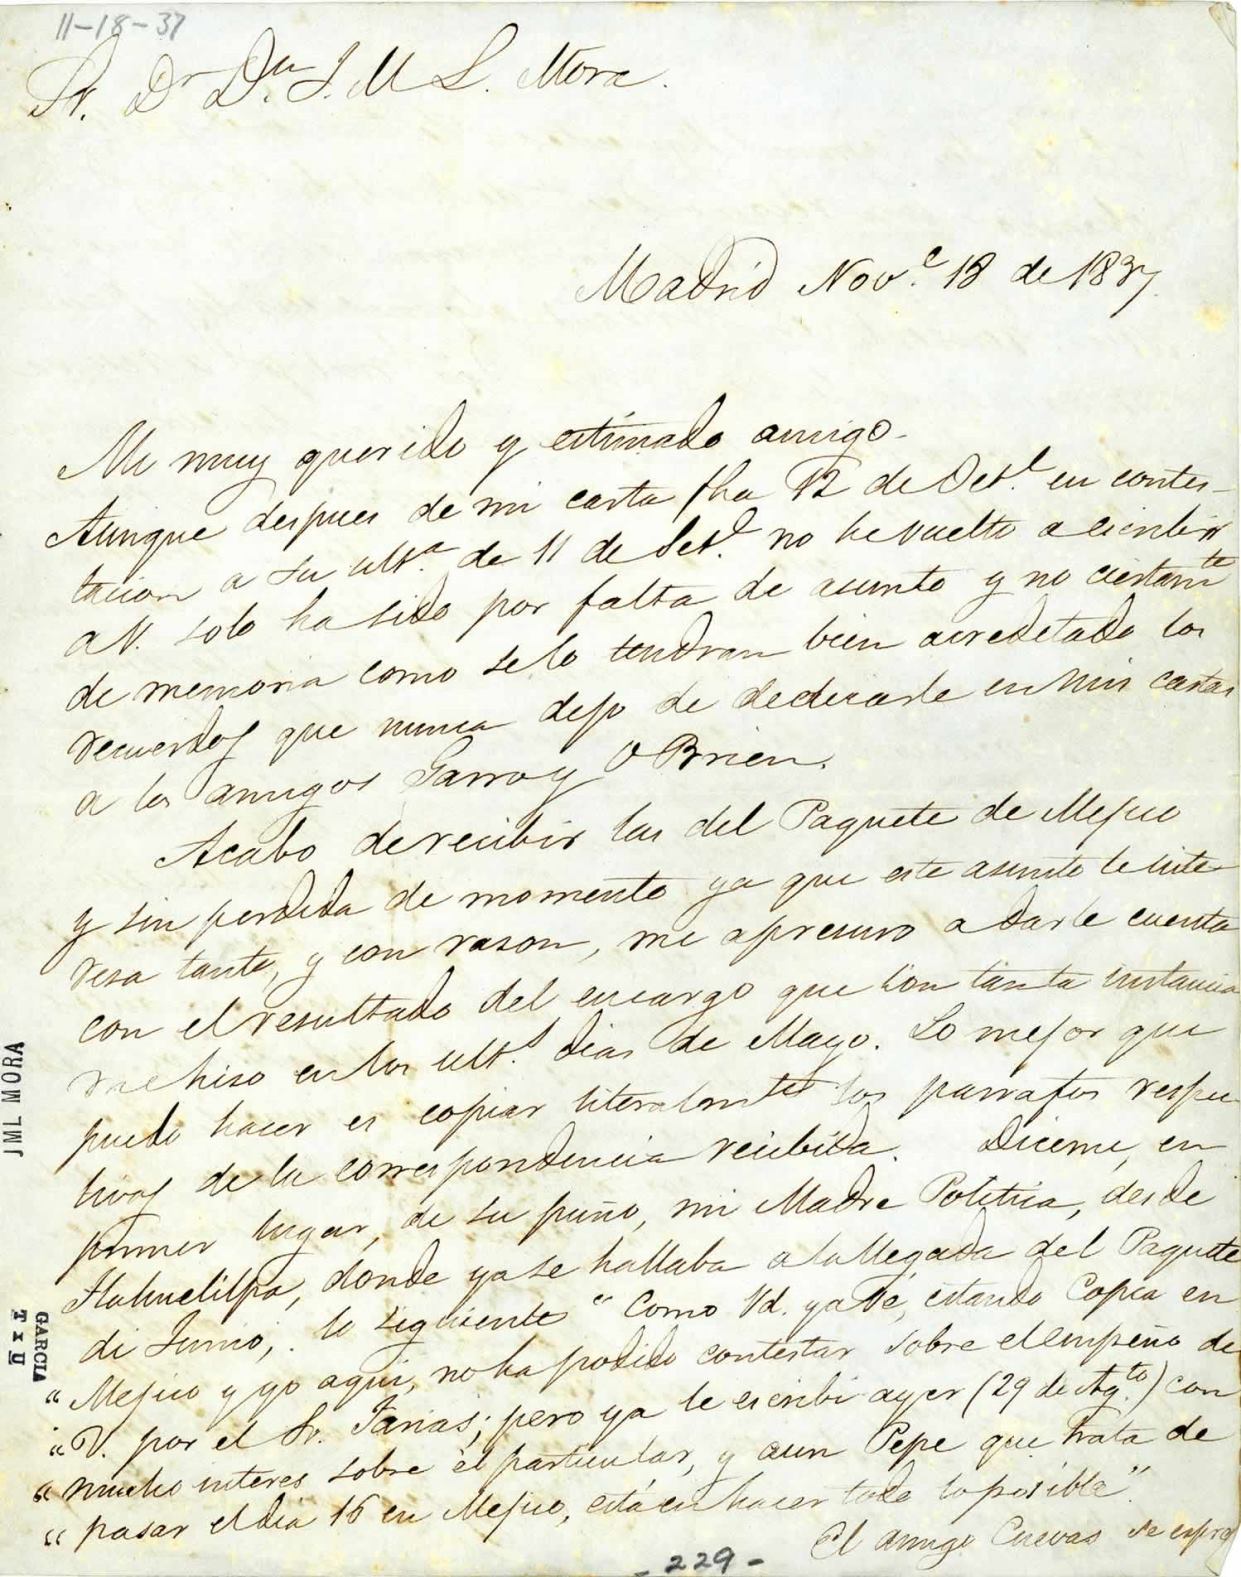 11-18-37
Sr. Dr Dn. J. M L. Mora.
Madrid Nove. 18 de 1837.
Mi muy querido y estimado amigo.
Aunque despues de mi carta fha 12 de Octe. en contes-
tacion a su ulta. de 11 de Sete. no he vuelto a escribir
a V. solo ha sido por falta de asunto y no ciertamte
de memoria como se lo tendran bien acreditado los
recuerdos que nunca dejo de dedicarle en mis cartas
a los amigos Garro y O Brien.
Acabo de recibir las del Paquete de Mejico
y sin perdida de momento ya que este asunto le inte-
resa tanto, y con rason, me apresuro a darle cuenta
con el resultado del encargo que con tanta instancia
me hiso en los ults. dias de Mayo. Lo mejor que
puedo hacer es copiar literalmte los parrafos respec
tivos de la correspondencia recibida. Diceme, en
primer lugar, de su puño, mi Madre Politica, desde
Tlahuelilpa, donde ya se hallaba a la llegada del Paquete
di Junio, lo siguiente "Como Vd. ya Ve, estando Copca en
"Mejico y yo aqui, no ha podido contestar sobre el empeño de
"V. por el Sr. Farias; pero ya le escribi ayer (29 de Agto.) con
"mucho interes sobre el particular, y aun Pepe que trata de
"pasar el dia 16 en Mejico, está en hacer todo lo posible".
El amigo Cuevas se espre
- 229 -
JML MORA
GARCIA
TxU